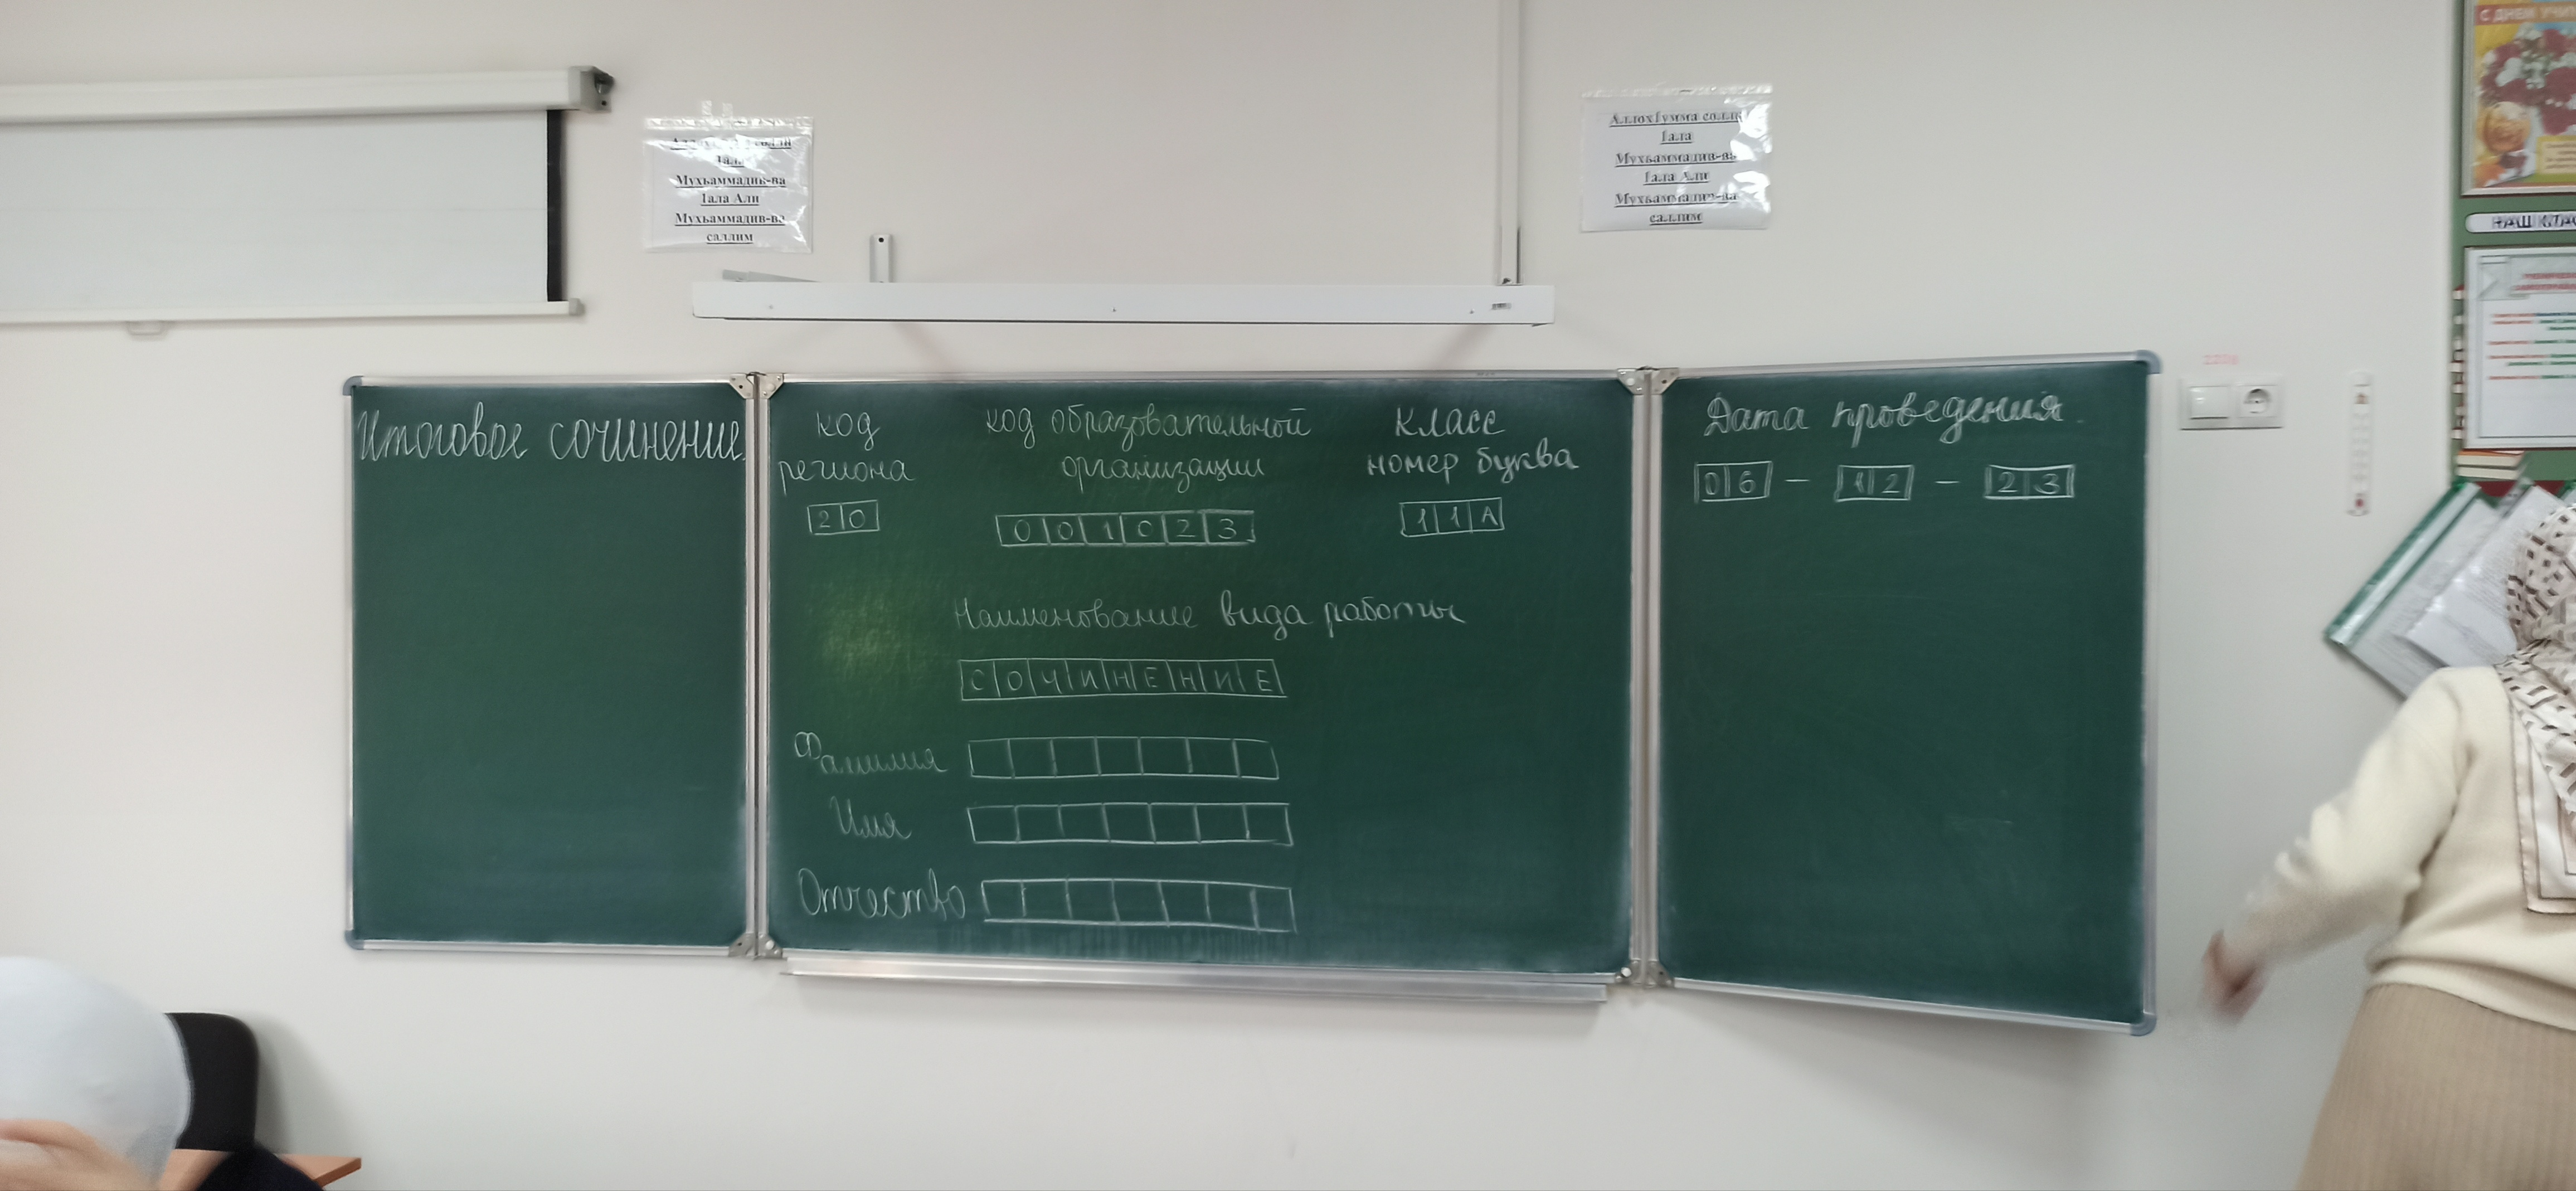 саллим
Мухьаммадив-ва
1ала Али
Мухьаммадив-ва
саллим
Аллох1умма
1ала
Мухьаммадив-ва
1ала Али
Мухьаммадив-ва
саллим
С ДНЕМ
НАШ
Итоговое сочинение.
код
региона
20
код образовательной
организации
001023
Класс
номер буква
11А
Наименование вида работы
СОЧИНЕНИЕ
Фамилия
Имя
Отчество
Дата проведения.
06 – 12 – 23